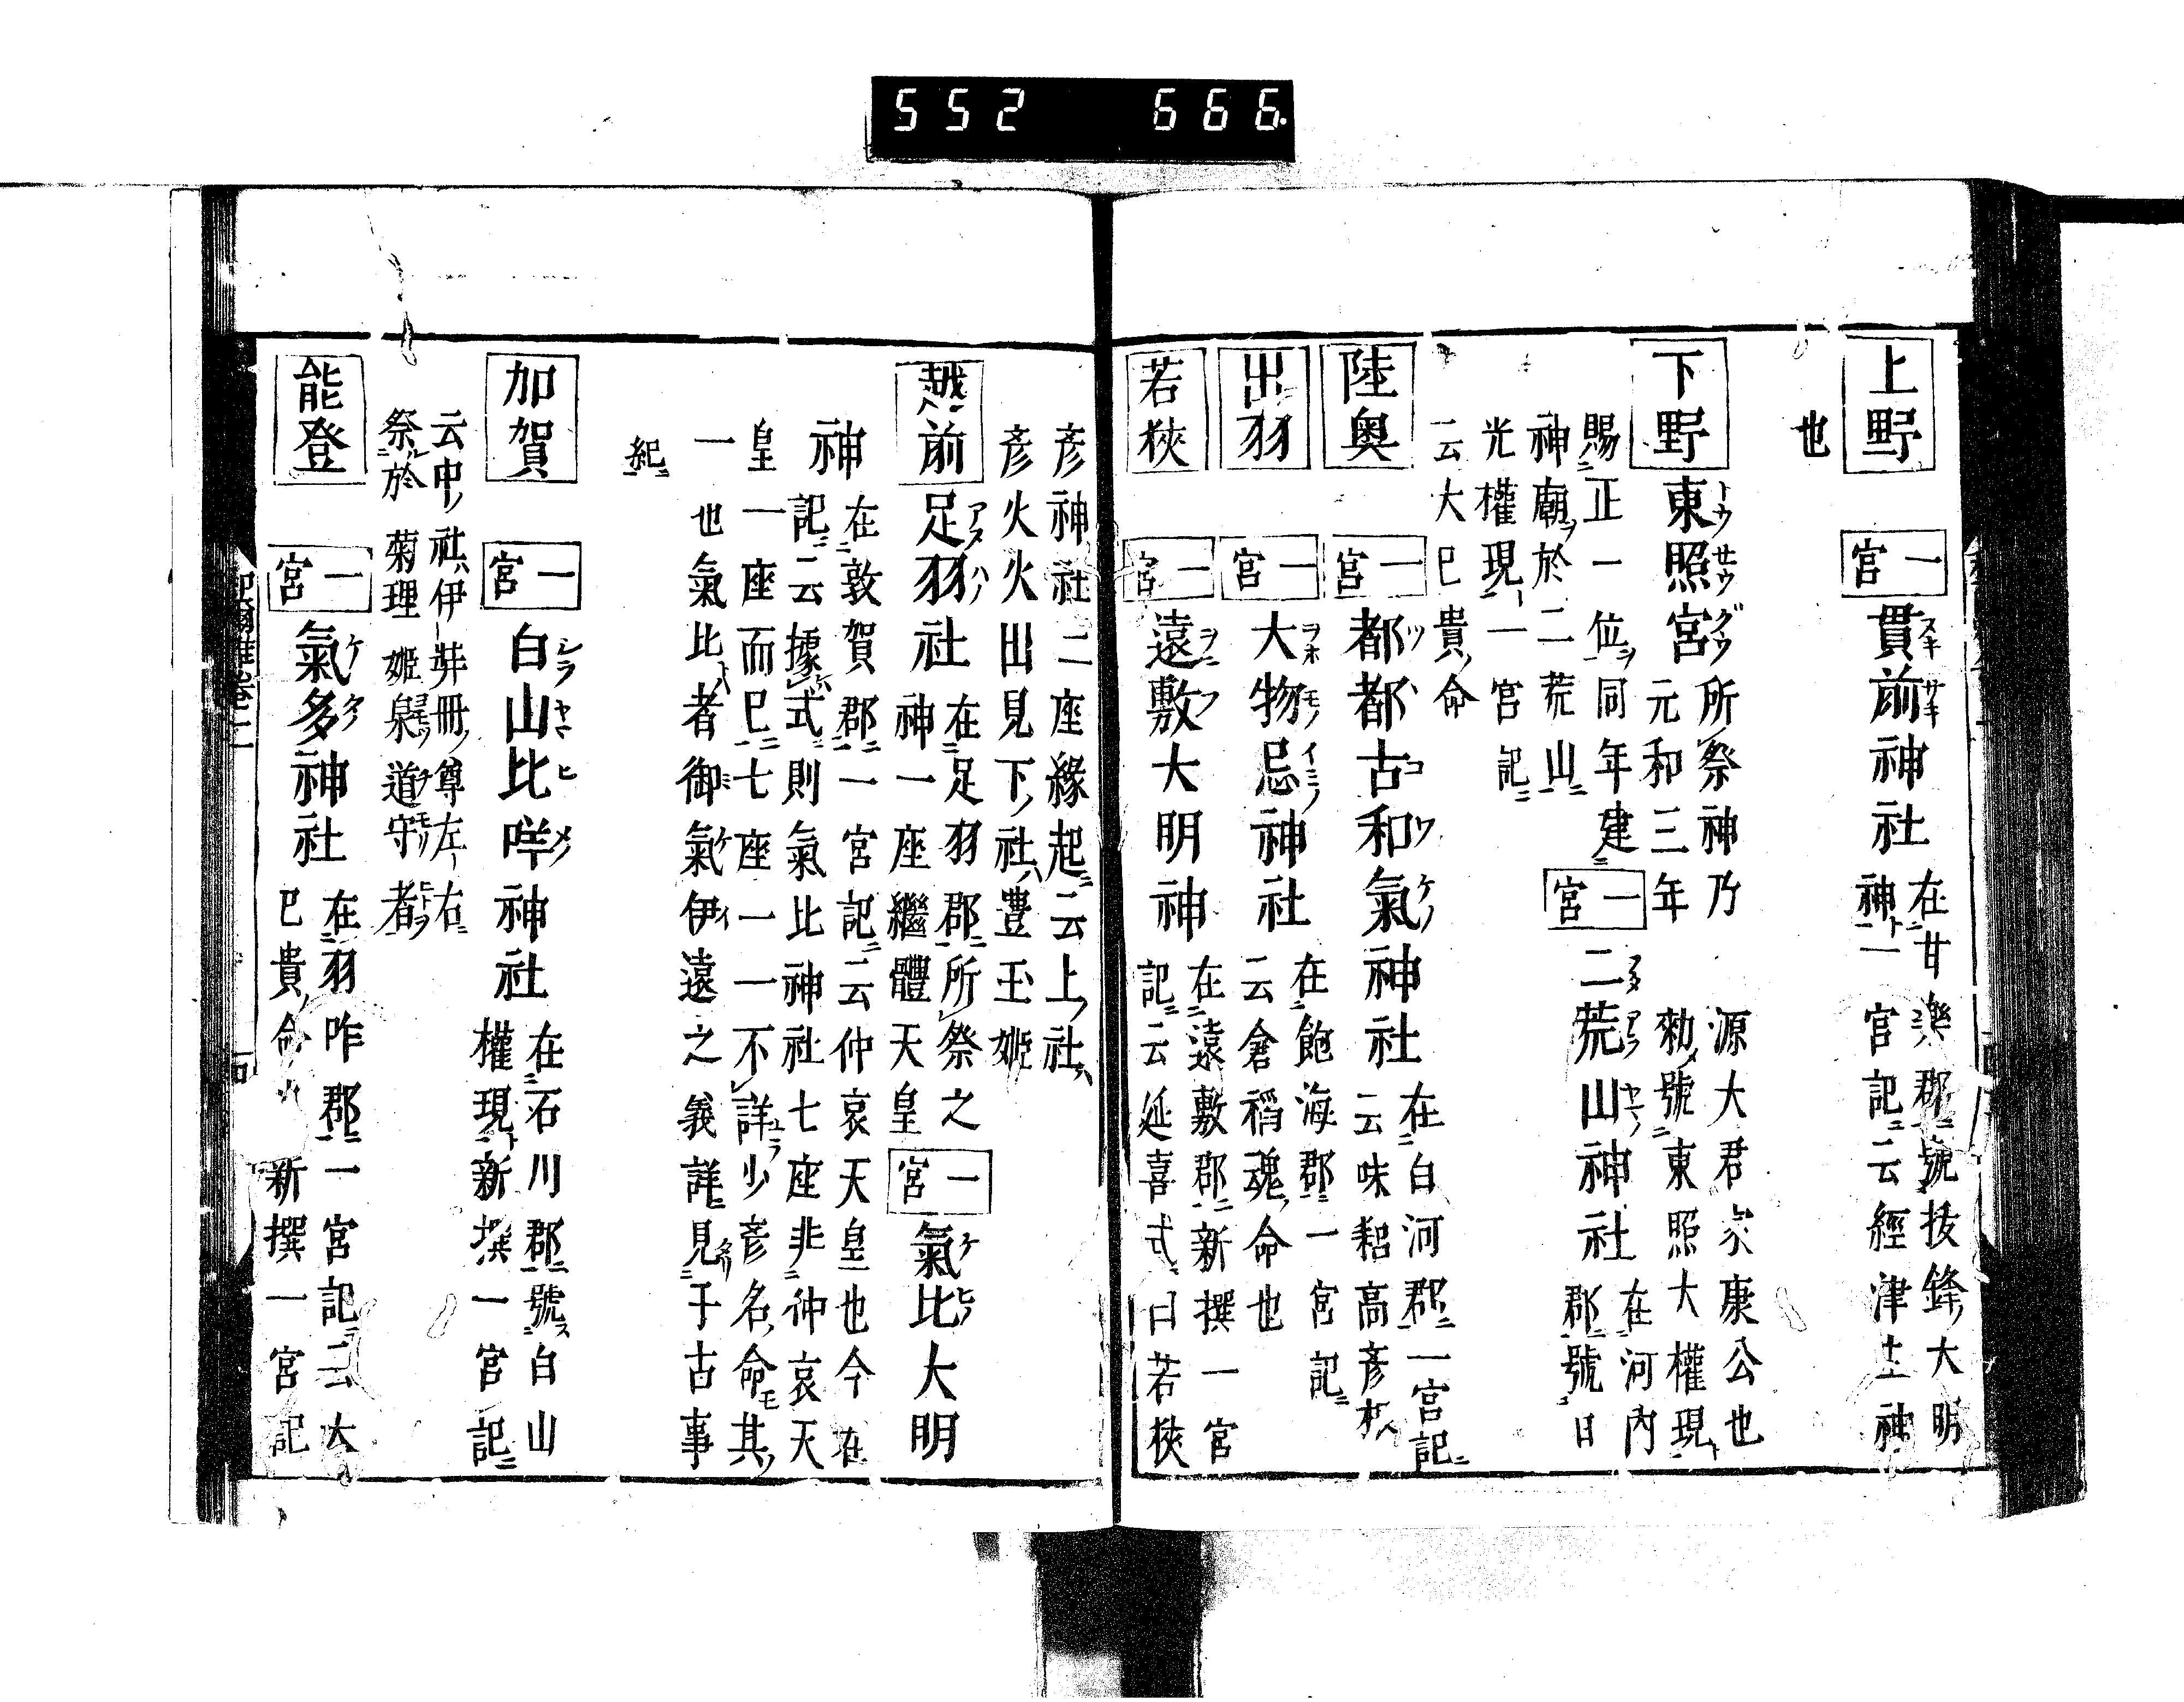 552 666
上野 一宮 貫前神社 在甘樂郡號抜鋒大明
神一宮記云經津主神
也
下野 東照宮 所祭神乃源大君家康公也
元和三年勅號東照大權現
賜正一位同年建 一宮 二荒山神社 在河内
郡號日
神廟於二荒山
光權現一宮記
云大已貴命
陸奥 一宮 都都古和氣神社 在白河郡一宮記
云味耜高彦根
出羽 一宮 大物忌神社 在飽海郡一宮記
云倉稻魂命也
若狹 一宮 遠敷大明神 在遠敷郡新撰一宮
記云延喜式曰若狹
彦神社二座緣起云上社
彦火火出見下社豊玉姫
越前 足羽社 在足羽郡所祭之
神一座繼體天皇 一宮 氣比大明
神 在敦賀郡一宮記云仲哀天皇也今在
記云據式則氣比神社七座非仲哀天
皇一座而已七座一一不詳少彦名命其
一也氣比者御氣伊遠之義詳見于古事
紀
加賀 一宮 白山比咩神社 在石川郡號白山
權現新撰一宮記
云中社伊弉冊尊左右
祭於菊理姫泉道守者
能登 一宮 氣多神社 在羽咋郡一宮記云大
已貴命 新撰一宮記